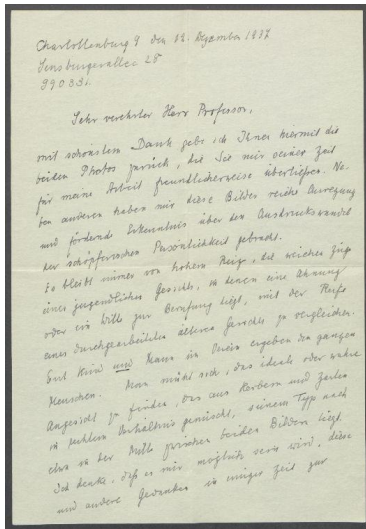 Charlottenburg 9 den 12. Dezember 1937
Sensburgerallee 28
990331.
Sehr verehrter Herr Professor,
mit schönstem Dank gebe ich Ihnen hiermit die
beiden Photos zurück, die Sie mir seiner Zeit
für meine Arbeit freundlicherweise überließen. Ne-
ben anderen haben mir diese Bilder reiche Anregung
und fördernde Erkenntnis über den Ausdruckswandel
der schöpferischen Persönlichkeit gebracht.
Es bleibt immer von hohem Reiz, die weichen Züge
eines jugendlichen Gesichts, in denen eine Ahnung
oder ein Wille zur Berufung liegt, mit der Reife
eines durchgearbeiteten älteren Gesichts zu vergleichen.
Erst Kind und Mann im Verein ergeben den ganzen
Menschen. Man müht sich, das ideale oder wahre
Angesicht zu finden, das aus Herbem und Zartem
in Verhältnis gemischt, seinem Typ nach
etwa in der Mitte zwischen beiden Bildern liegt.
Ich denke, daß es mir möglich sein wird, diese
und andere Gedanken in einiger Zeit zur